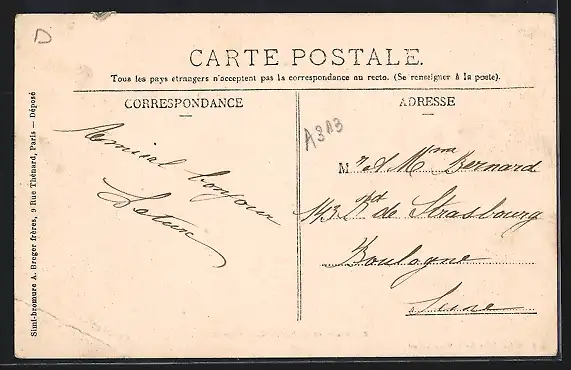 D
CARTE POSTALE.
Tous les pays étrangers n'acceptent pas la correspondance au recto. (Se renseigner à la poste).
CORRESPONDANCE
ADRESSE
A313
Amical bonjour
M r et Mme Bernard
143 Bd de Strasbourg
Boulogne
Seine
Simi-bromure A. Breger frères, 9 Rue Thénard, Paris — Déposé